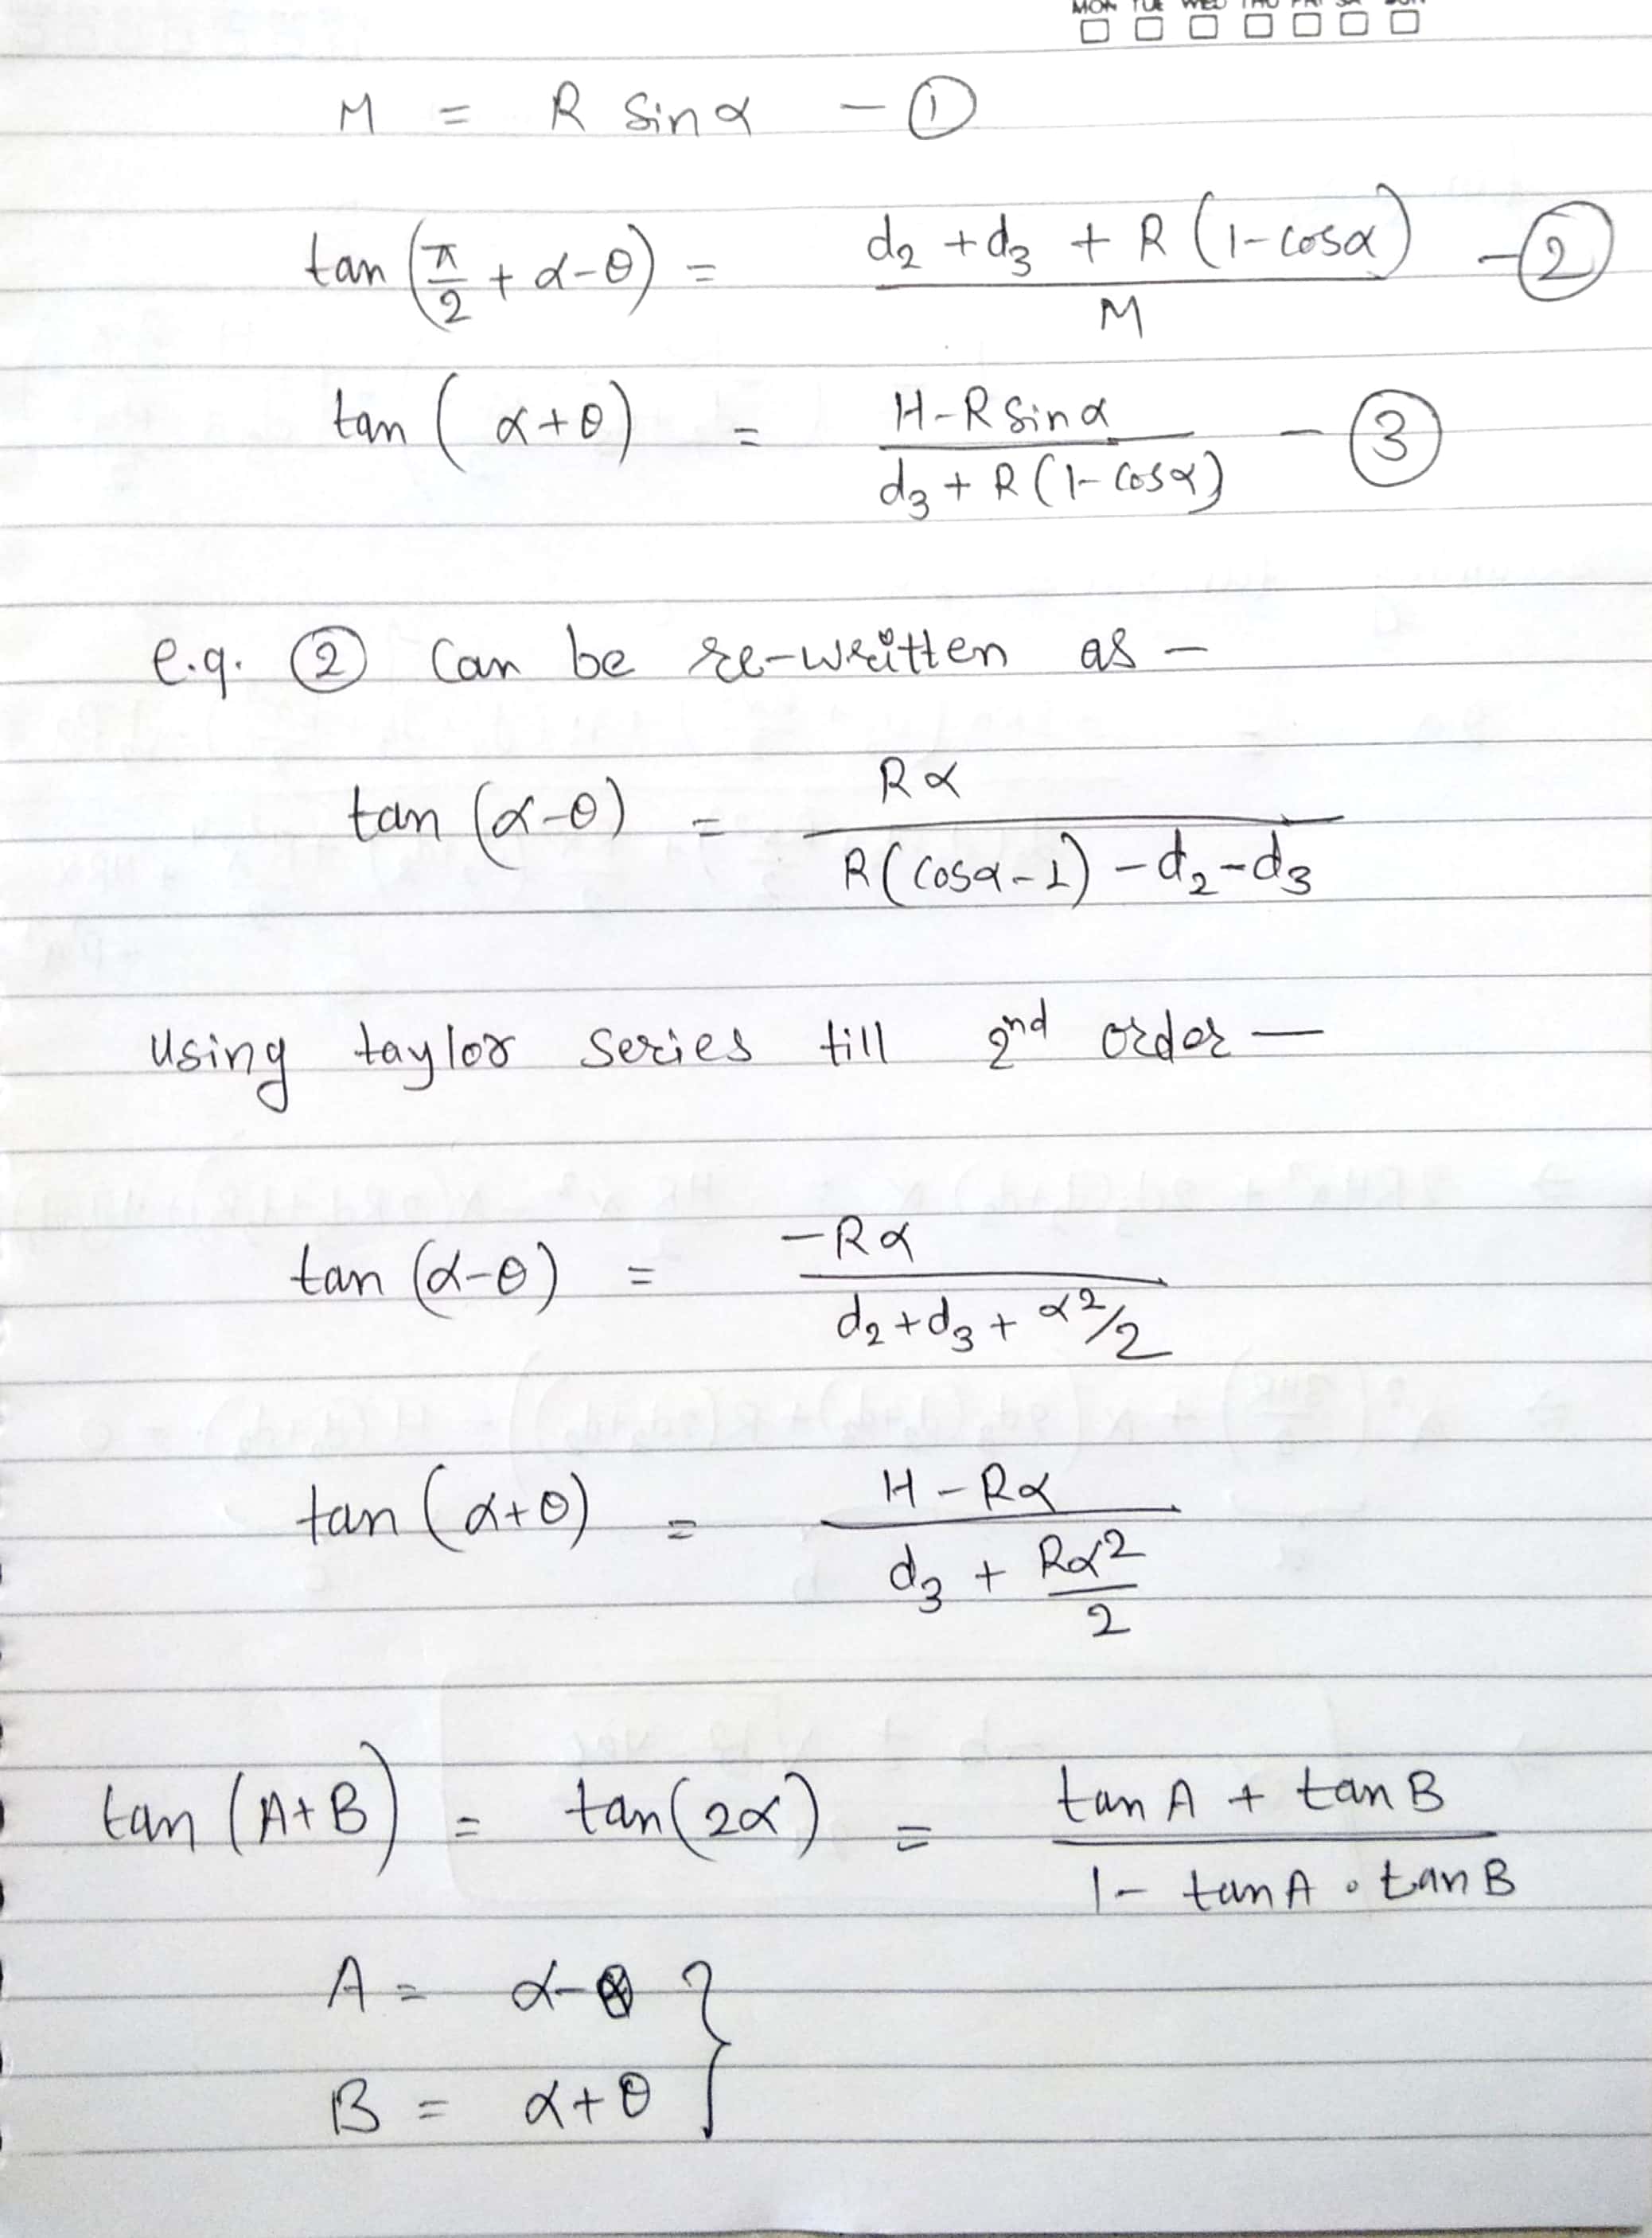 MON TUE WED THU FRI SA SUN
M = R Sinα — ①
tan (π/2 + α-θ) = (d₂ + d₃ + R (1-cosα)) / M — ②
tan (α+θ) = (H-R Sinα) / (d₃ + R (1-Cosα)) — ③
e.q. ② Can be re-written as —
tan (α-θ) = Rα / (R(Cosα-1) - d₂-d₃)
Using taylor series till 2nd order —
tan (α-θ) = -Rα / (d₂+d₃+ α²/2)
tan (α+θ) = (H - Rα) / (d₃ + Rα²/2)
tan (A+B) = tan(2α) = (tan A + tan B) / (1- tan A · tan B)
A = α-θ }
B = α+θ